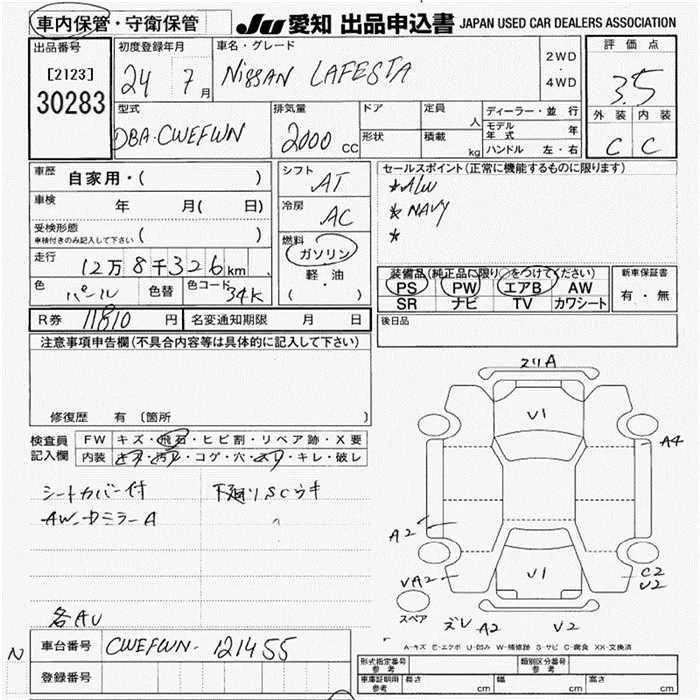 車内保管・守衛保管 JU 愛知 出品申込書 JAPAN USED CAR DEALERS ASSOCIATION
出品番号 初度登録年月 車名・グレード 評価点
[2123] 24 7月 NISSAN LAFESTA 2WD 3.5
30283 4WD
外装 内装
型式 排気量 ドア 定員 人 ディーラー・並行
DBA-CWEFWN 2000 cc 形状 積載 kg モデル年式 年 C C
ハンドル 左・右
車歴 自家用・( ) シフト AT セールスポイント(正常に機能するものに限ります)
*A/W
車検 年 月( 日) 冷房 AC *NAVY
受検形態 *
車検付きのみ記入して下さい 燃料 ガソリン
走行 12万8千326km 軽・油 装備品(純正品に限り○をつけてください) 新車保証書
色 パール 色替 色コード 34K ( ) PS PW エアB AW 有・無
SR ナビ TV カワシート
R券 11810 円 名変通知期限 月 日 後日品
注意事項申告欄(不具合内容等は具体的に記入して下さい)
修復歴 有 (箇所 )
検査員 FW キズ・飛石・ヒビ割・リペア跡・X要
記入欄 内装 キズ・汚レ・コゲ・穴・スリ・キレ・破レ
シートカバー付 下廻りSCウキ
AW.ドミラーA
各AU
スリA
V1
A4
A2
V1
VA2 C2
V2
スペア ズレ A2 V2
A-キズ E-エクボ U-凹み W-補修跡 S-サビ C-腐食 XX-交換済
N 車台番号 CWEFWN-121455
登録番号
形式指定番号 参考 類別区分番号 参考
車庫証明用 参考 長さ cm 幅 cm 高さ cm